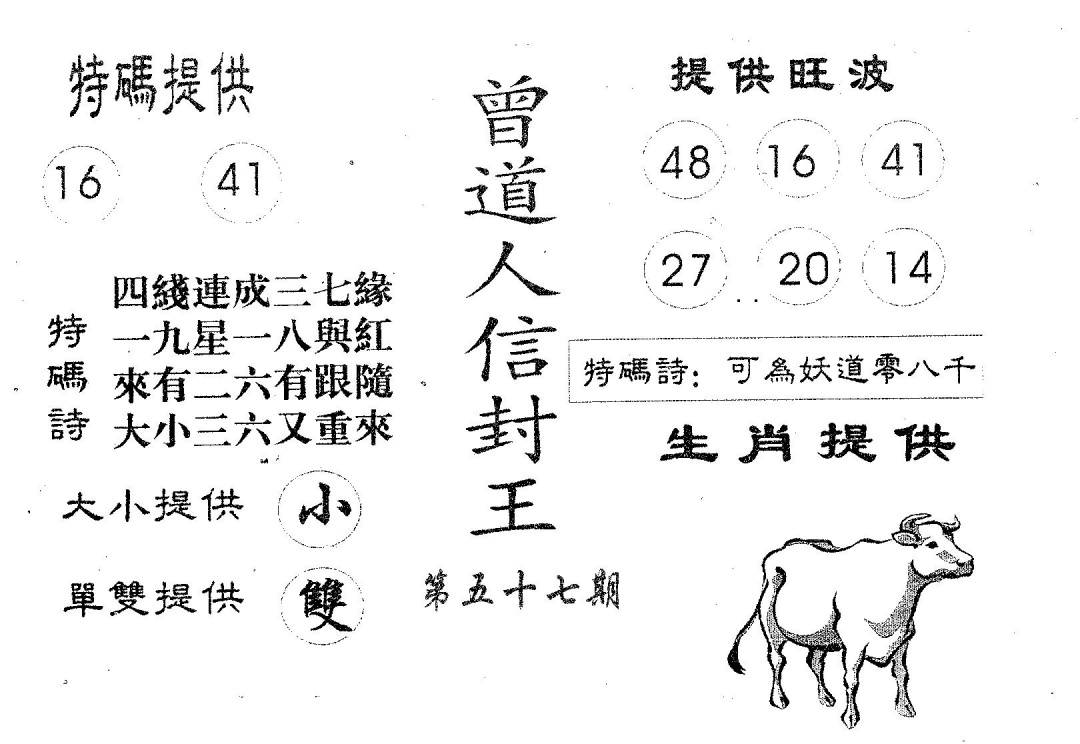 特碼提供
16 41
四綫連成三七緣
一九星一八與紅
來有二六有跟隨
大小三六又重來
特碼詩
大小提供 小
單雙提供 雙
曾道人信封王
第五十七期
提供旺波
48 16 41
27 20 14
特碼詩：可為妖道零八千
生肖提供